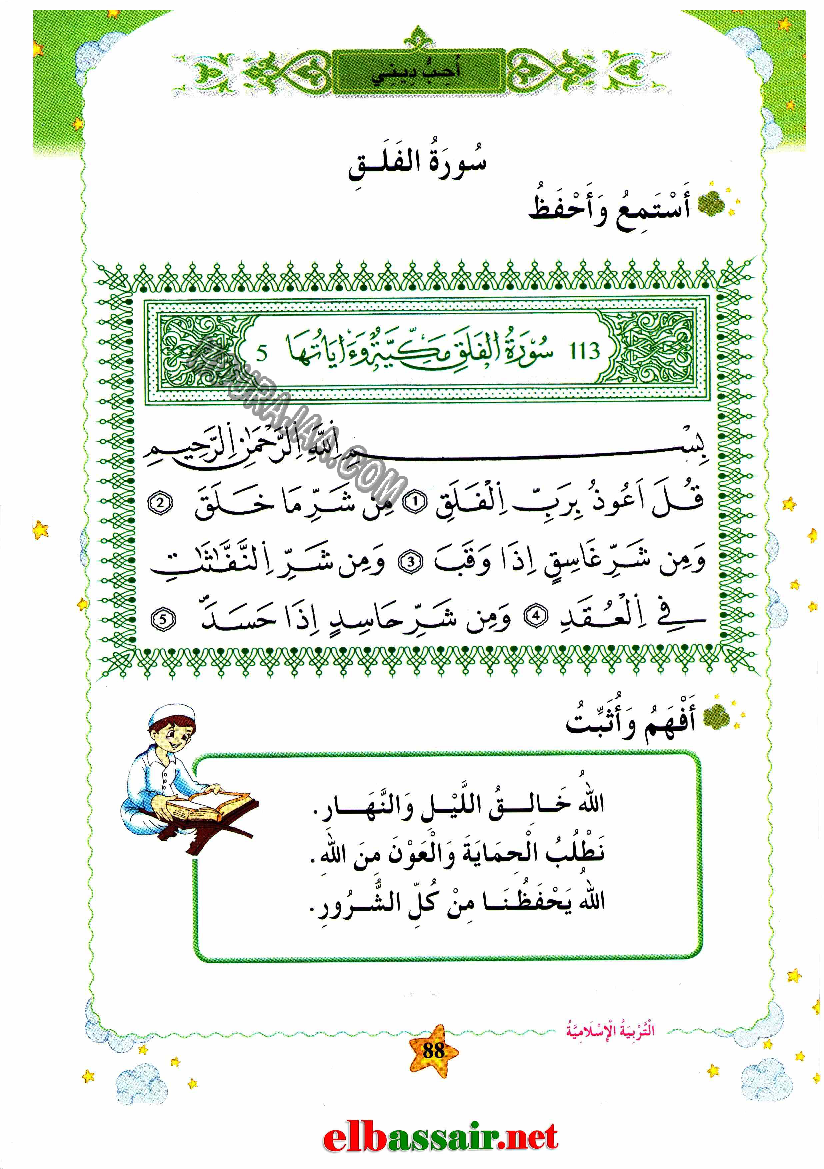 أُحِبُّ دِينِي
سُورَةُ الفَلَـقِ
أَسْتَمِعُ وَأَحْفَظُ
113 سُورَةُ الفَلَقِ مَكِّيَّةٌ وَءَايَاتُهَا 5
بِسْمِ اِللَّهِ اِلرَّحْمَٰنِ اِلرَّحِيمِ
قُلَ اَعُوذُ بِرَبِّ اِلْفَلَقِ ① مِن شَرِّ مَا خَلَقَ ②
وَمِن شَرِّ غَاسِقٍ اِذَا وَقَبَ ③ وَمِن شَرِّ اِلنَّفَّٰثَٰتِ
فِي اِلْعُقَدِ ④ وَمِن شَرِّ حَاسِدٍ اِذَا حَسَدَ ⑤
أَفْهَمُ وَأُثَبِّتُ
اللهُ خَالِـقُ اللَّيْـلِ وَالنَّهَـارِ.
نَطْلُبُ الْحِمَايَةَ وَالْعَوْنَ مِنَ اللهِ.
اللهُ يَحْفَظُنَـا مِنْ كُلِّ الشُّـرُورِ.
التَّرْبِيَةُ الْإِسْلَامِيَّةُ
88
elbassair.net